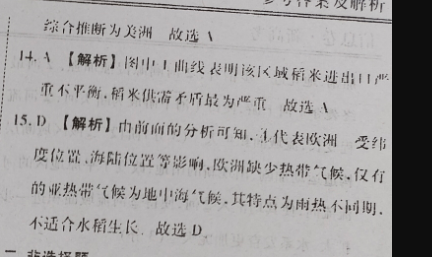 参考答案及解析
综合推断为美洲 故选 A
14. A 【解析】图中 曲线表明该区域稻米进出口严
重不平衡,稻米供需矛盾最为严重 故选 A
15. D 【解析】由前面的分析可知, 代表欧洲 受纬
度位置、海陆位置等影响,欧洲缺少热带气候,仅有
的亚热带气候为地中海气候,其特点为雨热不同期,
不适合水稻生长. 故选 D.
二 非选择题